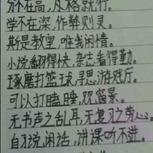 分不在高，及格就行。
学不在深，作弊则灵。
斯是教室，唯我闲情。
小说翻得快，杂志看得勤。
琢磨打篮球，寻思游戏厅。
可以打瞌睡，观窗景。
无书声之乱耳，无复习之劳心。
自习说闲话，讲课听不进。